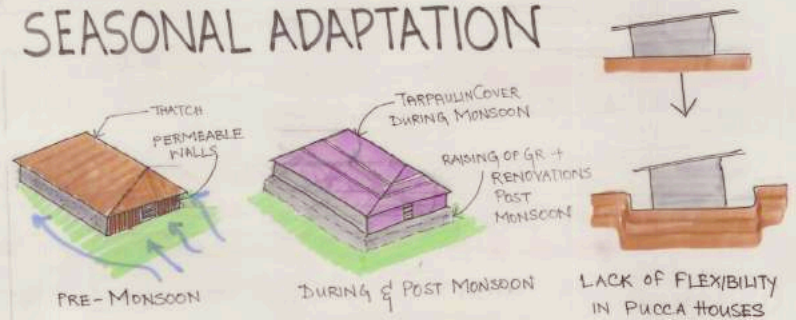 SEASONAL ADAPTATION
THATCH
PERMEABLE
WALLS
PRE-MONSOON
TARPAULIN COVER
DURING MONSOON
RAISING OF GR +
RENOVATIONS
POST
MONSOON
DURING & POST MONSOON
LACK OF FLEXIBILITY
IN PUCCA HOUSES